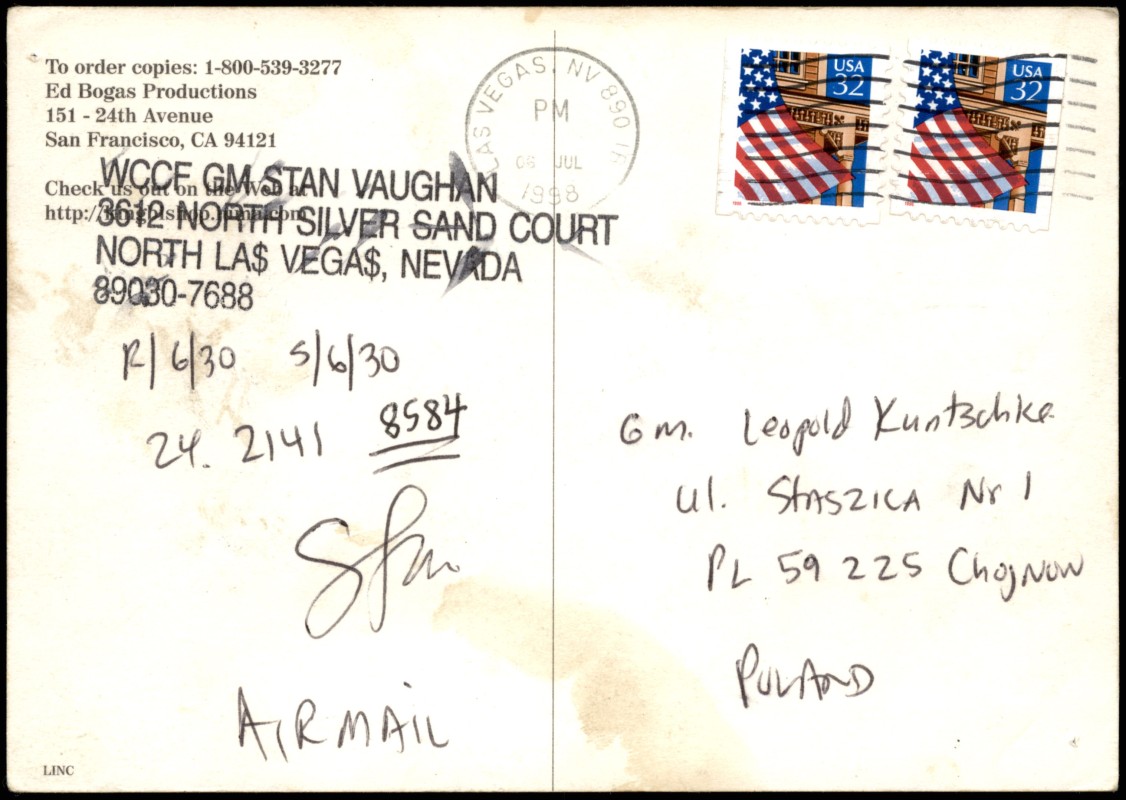 To order copies: 1-800-539-3277
Ed Bogas Productions
151 - 24th Avenue
San Francisco, CA 94121
Check us out on the Web at
http://
WCCF GM STAN VAUGHAN
3612 NORTH SILVER SAND COURT
NORTH LA$ VEGA$, NEVADA
89030-7688
R/6/30 S/6/30
24. 2141 8584
Stan
AIRMAIL
LINC
LAS VEGAS, NV 890
PM
06 JUL
1998
USA
32
USA
32
Gm. Leopold Kuntschke
ul. STASZICA Nr 1
PL 59 225 Chojnow
POLAND